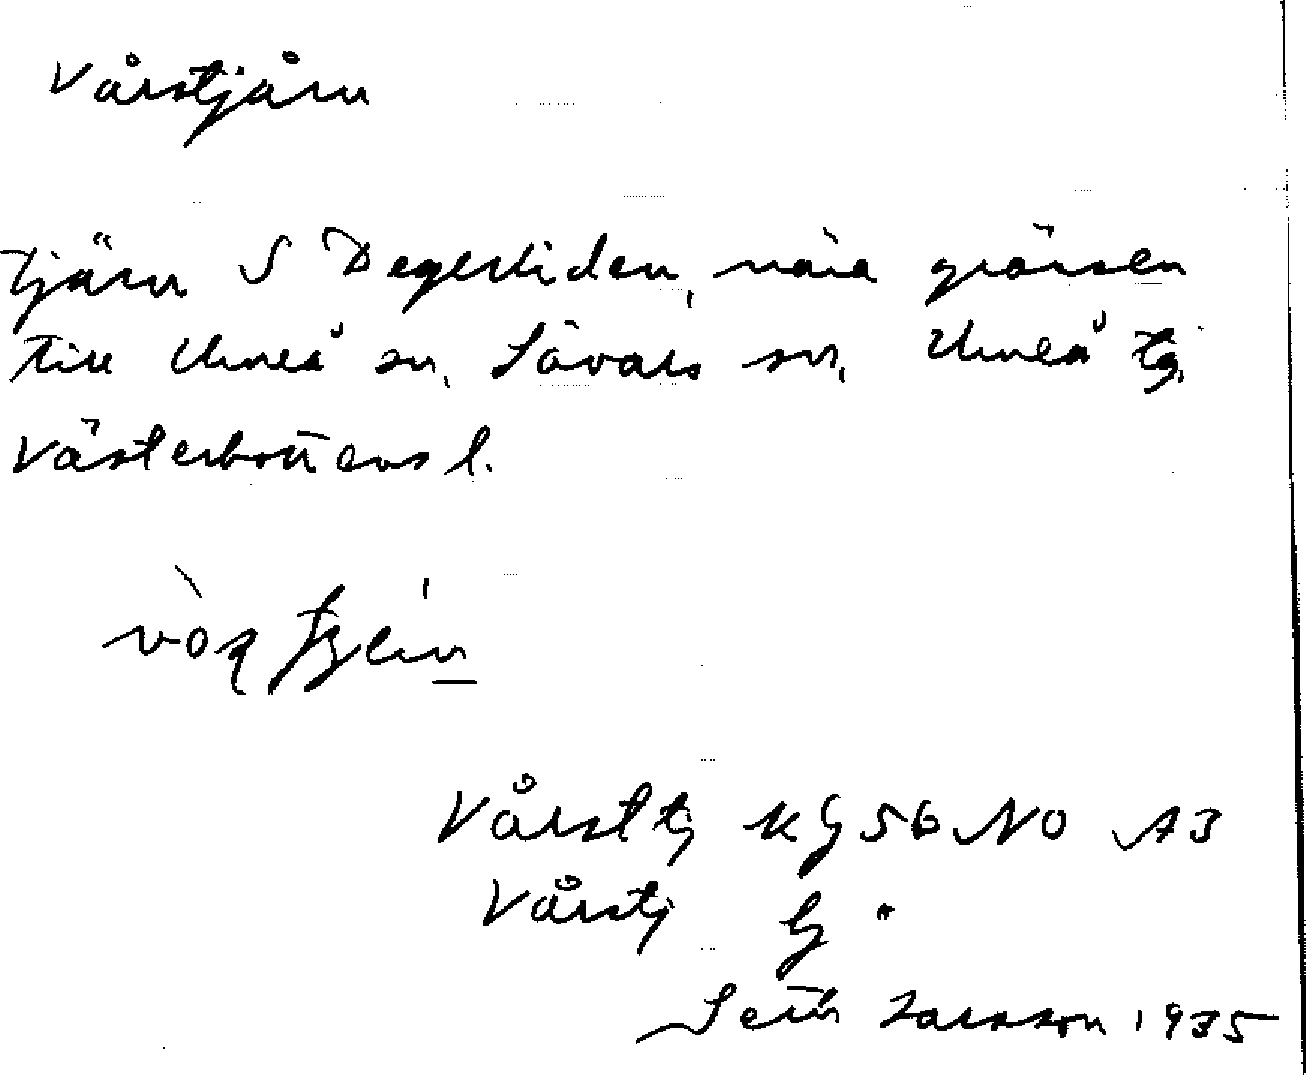 Vårstjärn
tjärn S Degerliden, nära gränsen
till Umeå sn, Sävars sn, Umeå tg,
Västerbottens l.
Vårsttj KG 56 NO A3
Vårstj G "
Seth Larsson 1935